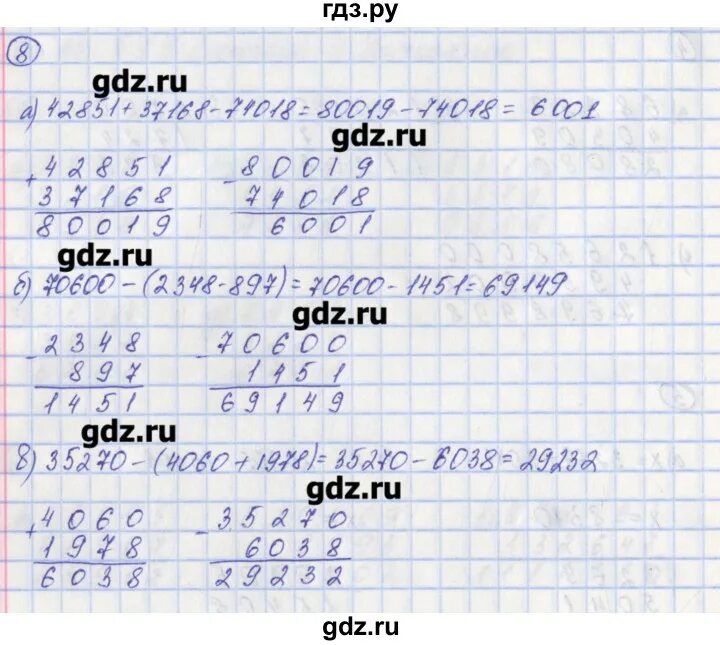 гдз.ру
8
gdz.ru
а) 42851+37168-74018=80019-74018= 6001
gdz.ru
+ 42851 - 80019
37168 74018
80019 6001
gdz.ru
б) 70600-(2348-897)=70600-1451=69149
gdz.ru
- 2348 - 70600
897 1451
1451 69149
gdz.ru
в) 35270-(4060+1978)=35270-6038=29232
gdz.ru
+ 4060 - 35270
1978 6038
6038 29232
gdz.ru